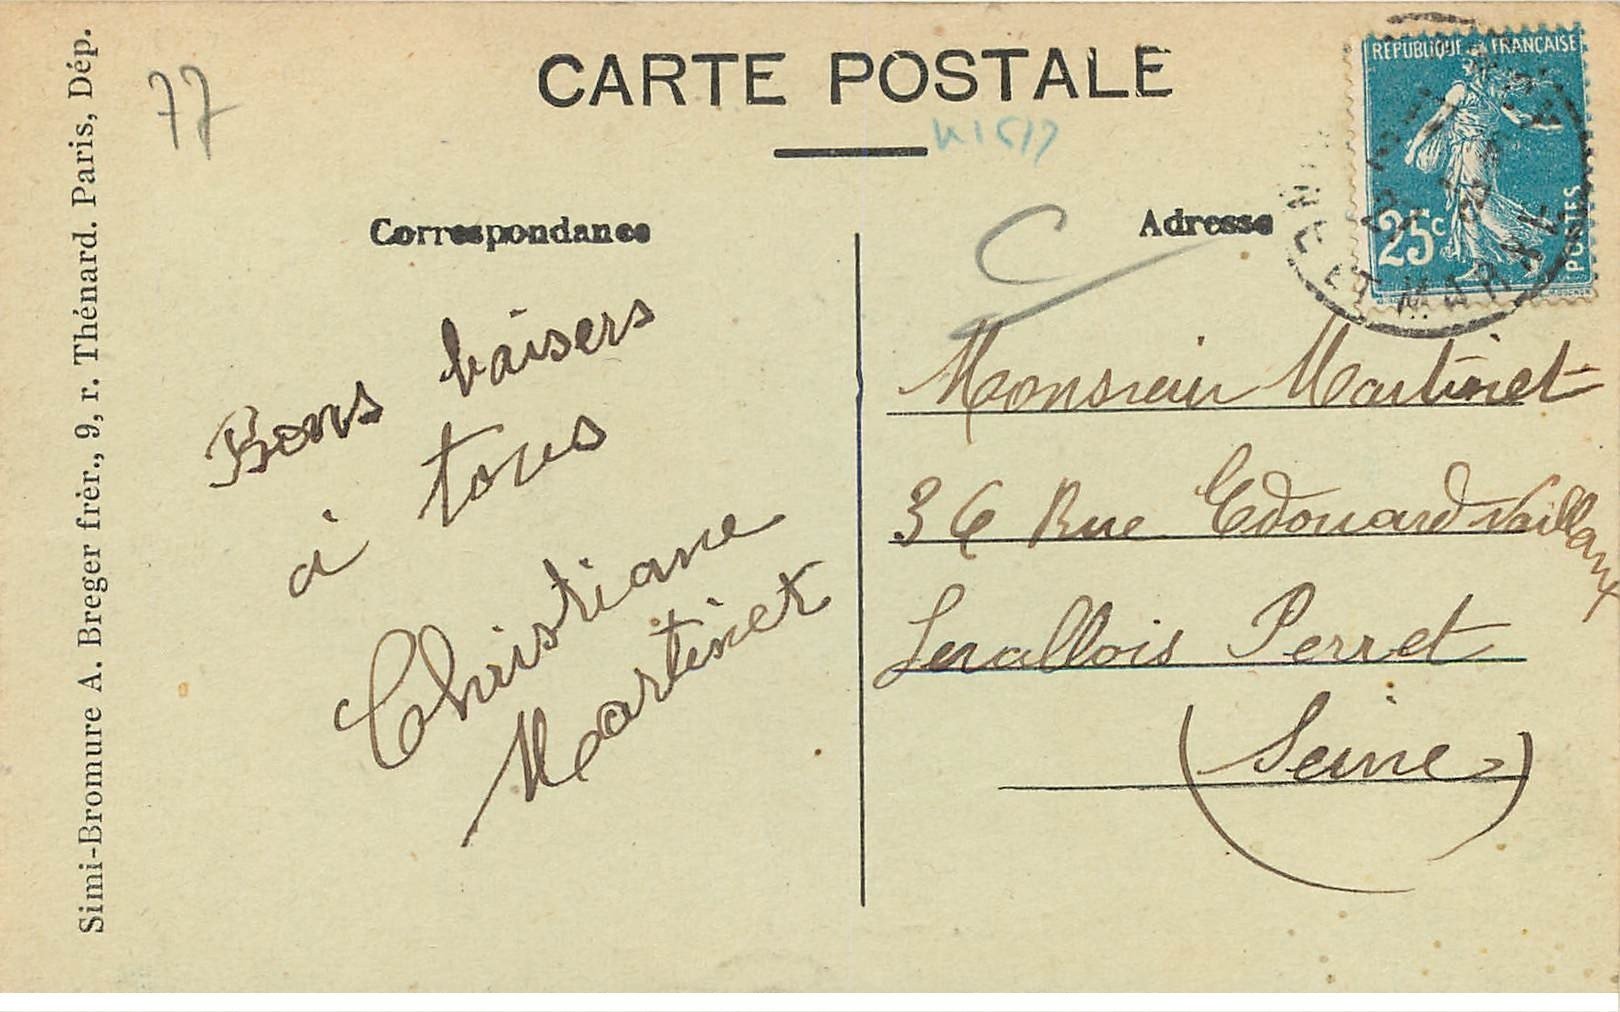 CARTE POSTALE
77
Correspondance
Adresse
RÉPUBLIQUE FRANÇAISE
25c
POSTES
NE ET MARNE
Bons baisers
à tous
Christiane
Martinet
Monsieur Martinet
36 Rue Edouard Vaillant
Levallois Perret
(Seine)
Simi-Bromure A. Breger frèr., 9, r. Thénard. Paris, Dép.